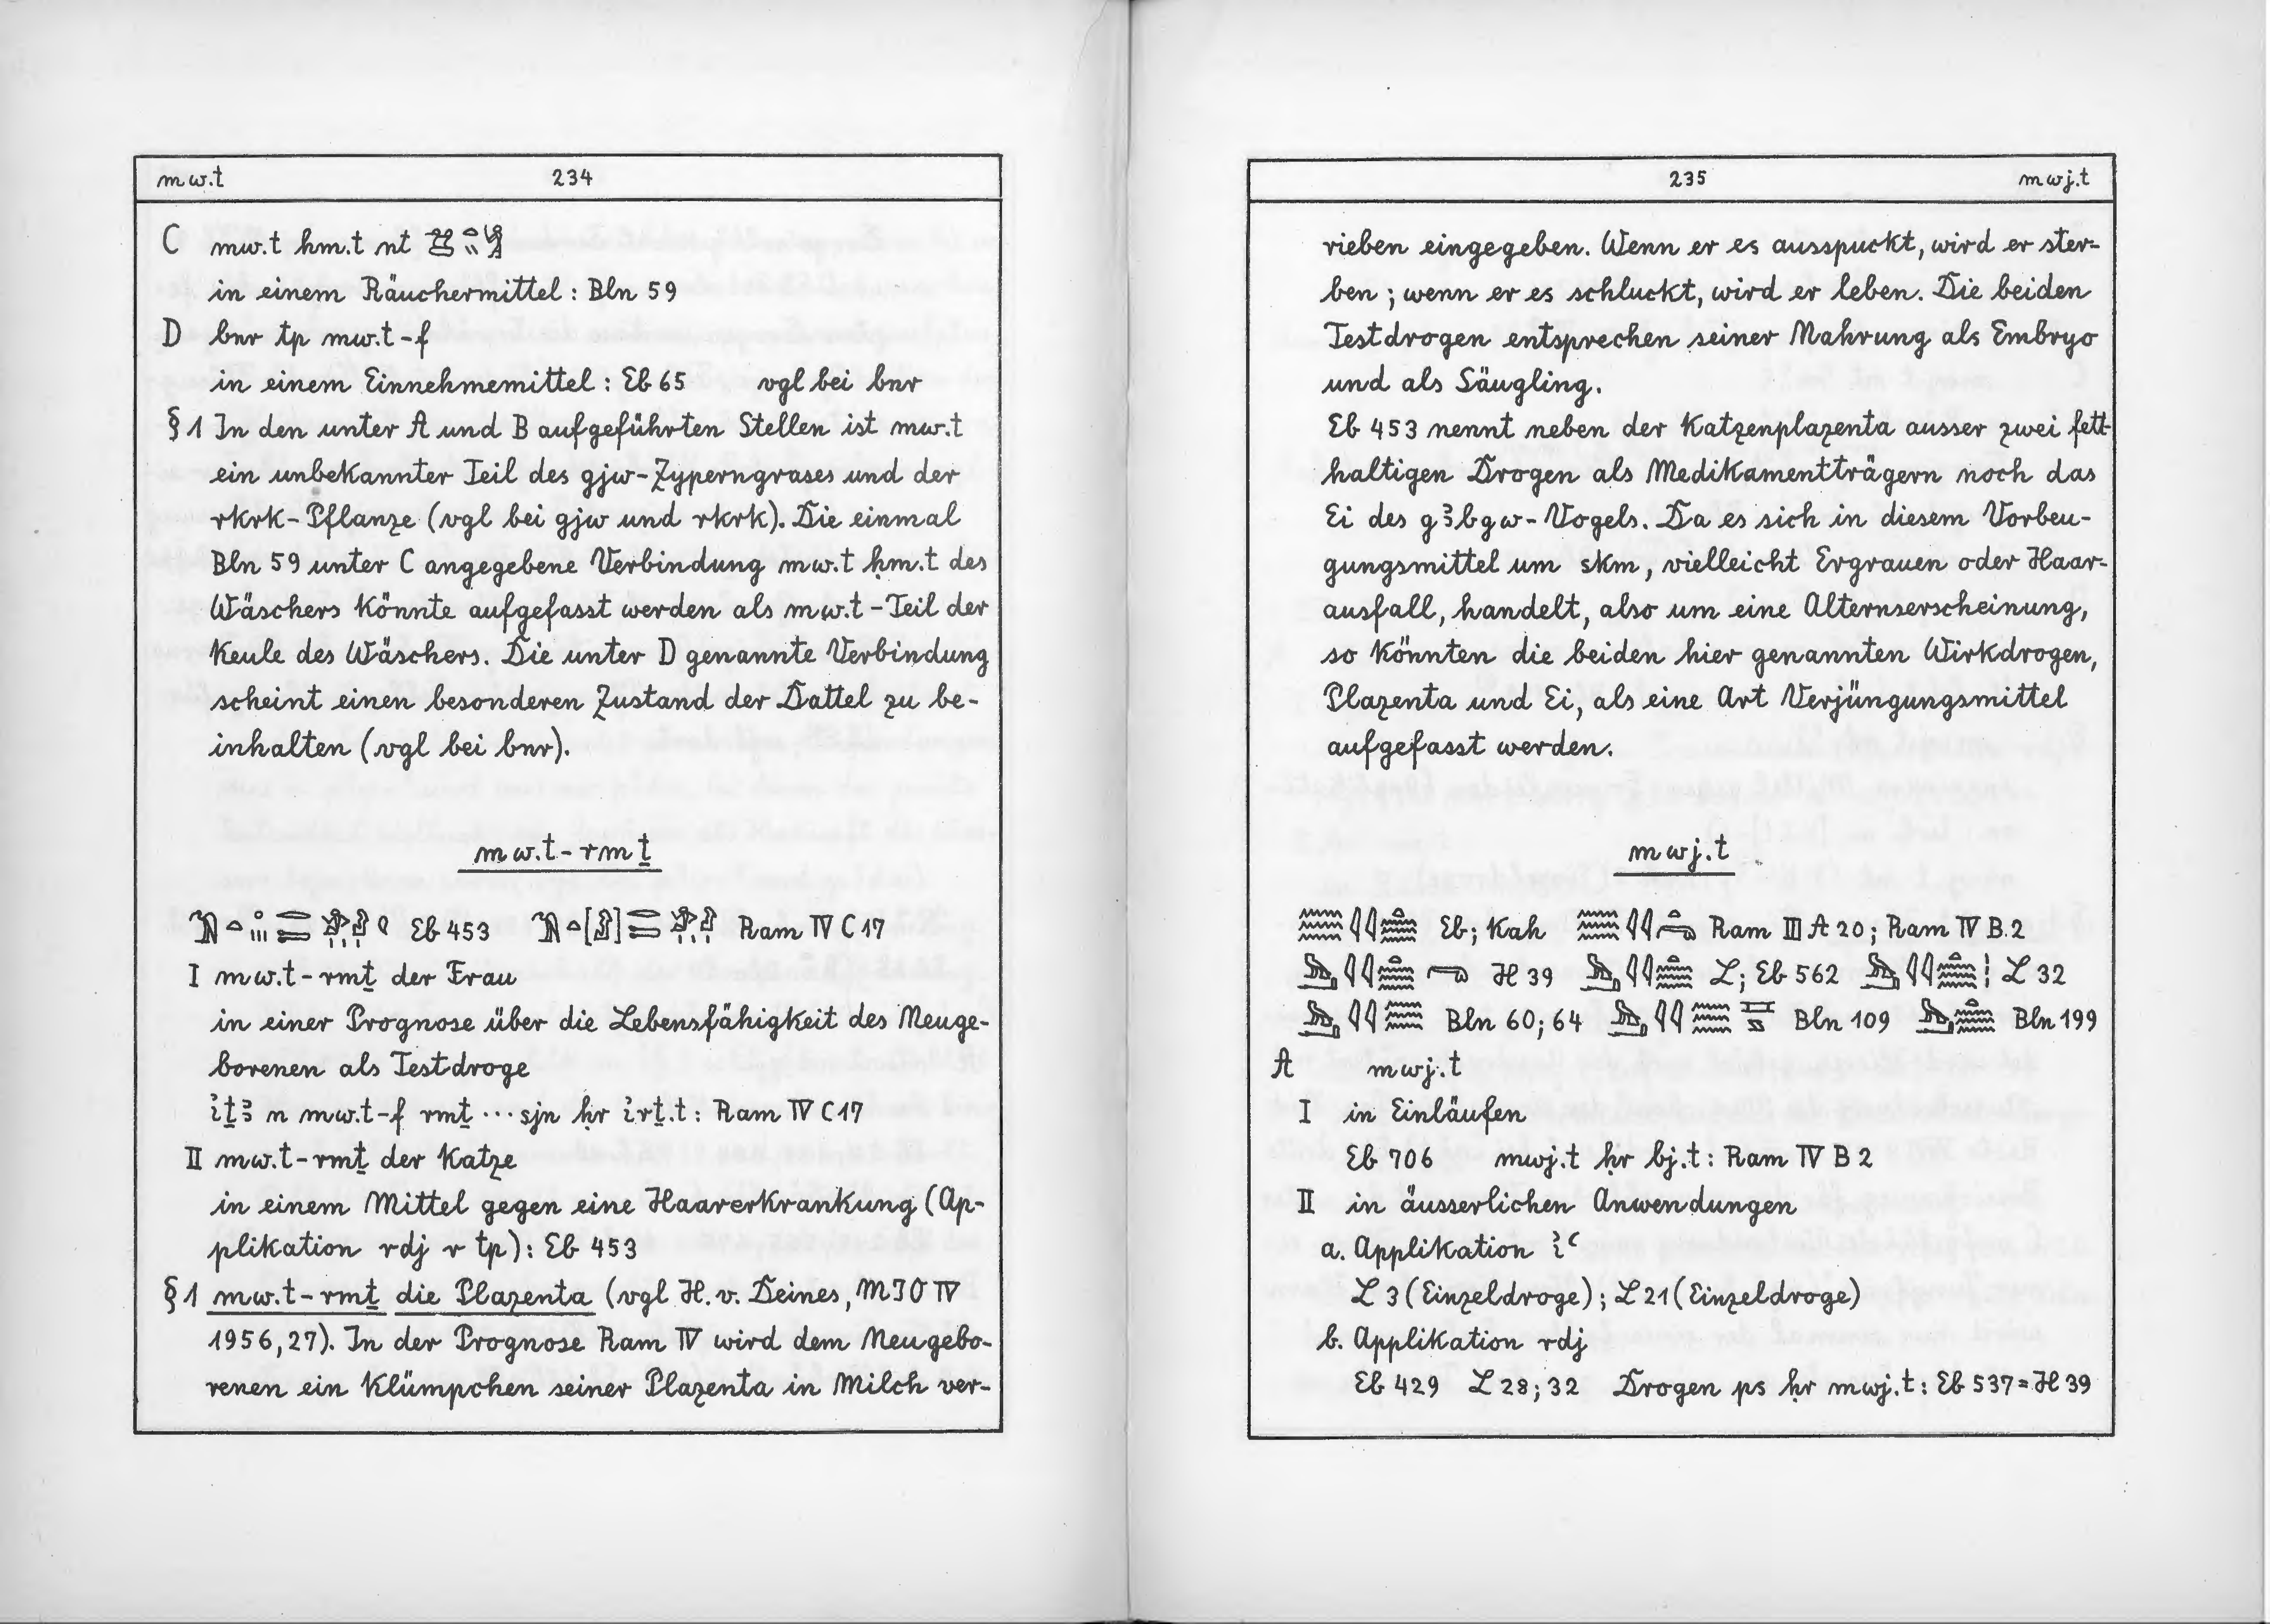 mw.t 234
C mw.t hm.t nt
in einem Räuchermittel: Bln 59
D bnr tp mw.t-f
in einem Einnehmemittel: Eb 65 vgl bei bnr
§ 1 In den unter A und B aufgeführten Stellen ist mw.t
ein unbekannter Teil des gjw-Zyperngrases und der
rkrk-Pflanze (vgl bei gjw und rkrk). Die einmal
Bln 59 unter C angegebene Verbindung mw.t ḥm.t des
Wäschers könnte aufgefasst werden als mw.t-Teil der
Keule des Wäschers. Die unter D genannte Verbindung
scheint einen besonderen Zustand der Dattel zu be-
inhalten (vgl bei bnr).
mw.t-rmṯ
Eb 453 Ram IV C 17
I mw.t-rmṯ der Frau
in einer Prognose über die Lebensfähigkeit des Neuge-
borenen als Testdroge
iṯꜣ n mw.t-f rmṯ ... sjn ḥr irṯ.t: Ram IV C 17
II mw.t-rmṯ der Katze
in einem Mittel gegen eine Haarerkrankung (Ap-
plikation rdj r tp): Eb 453
§ 1 mw.t-rmṯ die Plazenta (vgl H. v. Deines, MIO IV
1956, 27). In der Prognose Ram IV wird dem Neugebo-
renen ein Klümpchen seiner Plazenta in Milch ver-
235 mwj.t
rieben eingegeben. Wenn er es ausspuckt, wird er ster-
ben; wenn er es schluckt, wird er leben. Die beiden
Testdrogen entsprechen seiner Nahrung als Embryo
und als Säugling.
Eb 453 nennt neben der Katzenplazenta ausser zwei fett-
haltigen Drogen als Medikamentträgern noch das
Ei des gꜣbgw-Vogels. Da es sich in diesem Vorbeu-
gungsmittel um skm, vielleicht Ergrauen oder Haar-
ausfall, handelt, also um eine Alternserscheinung,
so könnten die beiden hier genannten Wirkdrogen,
Plazenta und Ei, als eine Art Verjüngungsmittel
aufgefasst werden.
mwj.t
Eb; Kah Ram III A 20; Ram IV B.2
H 39 L; Eb 562 L 32
Bln 60; 64 Bln 109 Bln 199
A mwj.t
I in Einläufen
Eb 706 mwj.t ḥr bj.t: Ram IV B 2
II in äusserlichen Anwendungen
a. Applikation iꜥ
L 3 (Einzeldroge); L 21 (Einzeldroge)
b. Applikation rdj
Eb 429 L 28; 32 Drogen ps ḥr mwj.t: Eb 537 = H 39